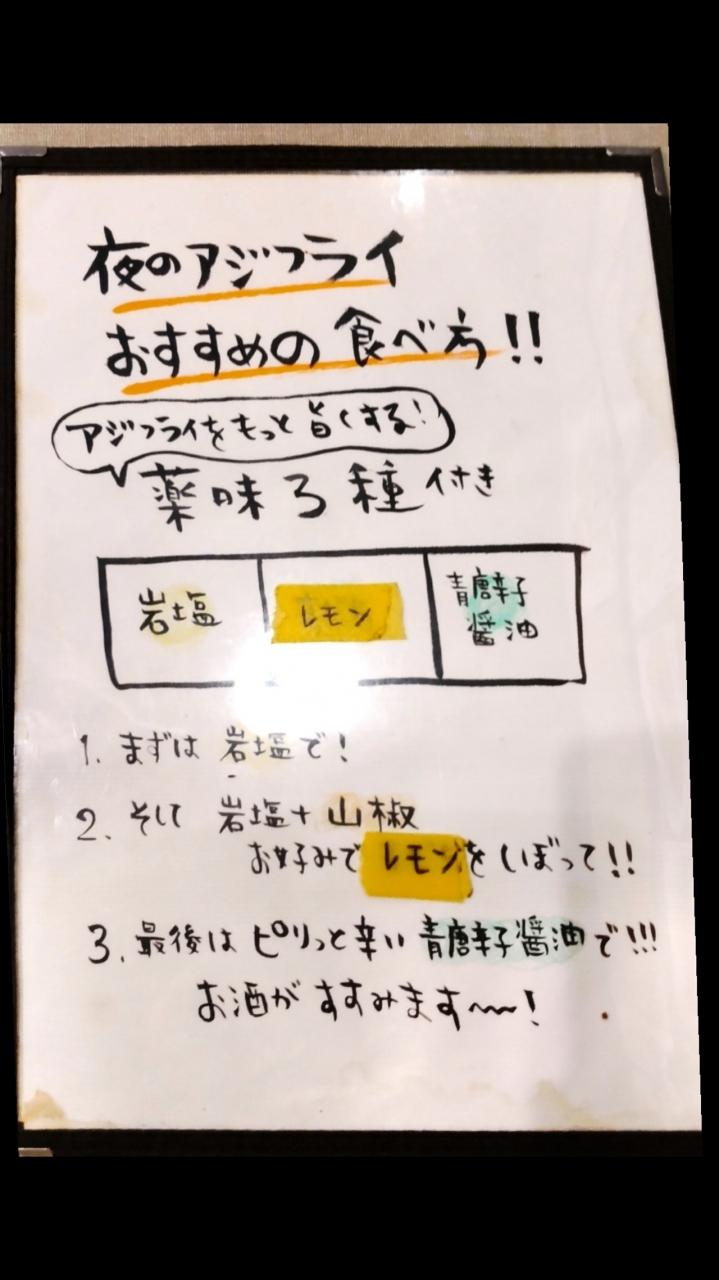 夜のアジフライ
おすすめの食べ方!!
アジフライをもっと旨くする!
薬味3種付き
岩塩
レモン
青唐辛子
醤油
1. まずは 岩塩で!
2. そして 岩塩+山椒
お好みでレモンをしぼって!!
3. 最後は ピリっと辛い 青唐辛子醤油で!!!
お酒が すすみます〜!